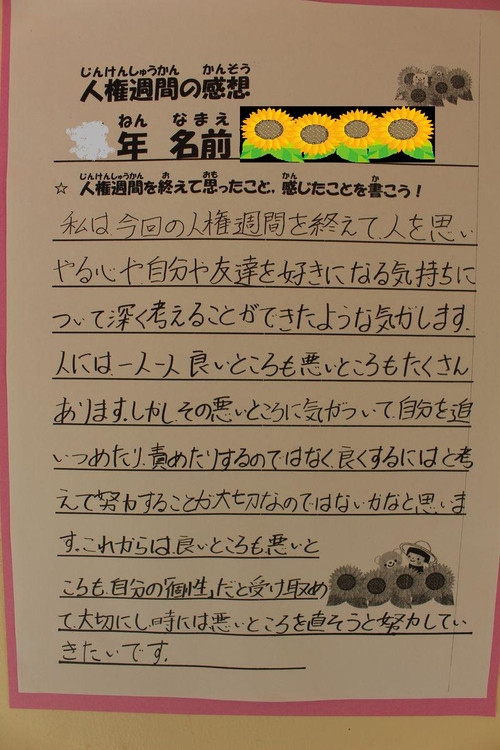 じんけんしゅうかん かんそう
人権週間の感想
ねん なまえ
年 名前
じんけんしゅうかん お おも かん か
☆ 人権週間を終えて思ったこと、感じたことを書こう！
私は、今回の人権週間を終えて、人を思い
やる心や、自分や友達を好きになる気持ちに
ついて深く考えることができたような気がします。
人には、一人一人良いところも悪いところもたくさん
あります。しかし、その悪いところに気がついて、自分を追
いつめたり、責めたりするのではなく、良くするにはと考
えて努力することが大切なのではないかなと思いま
す。これからは、良いところも、悪いと
ころも、自分の「個性」だと受け取め
て、大切にし、時には悪いところを直そうと努力してい
きたいです。